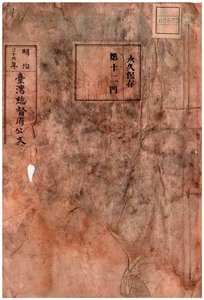 永久保存
第十二門
明治
二十九年
臺灣總督府公文